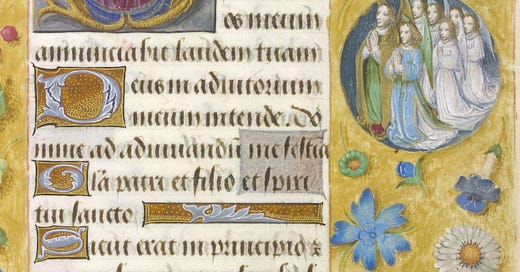 os meum
annunciabit laudem tuam
Deus in adiutorium
meum intende. Do
mine ad adiuuandum me festia
Gla patri et filio et spiri
tui sancto
Sicut erat in principio &